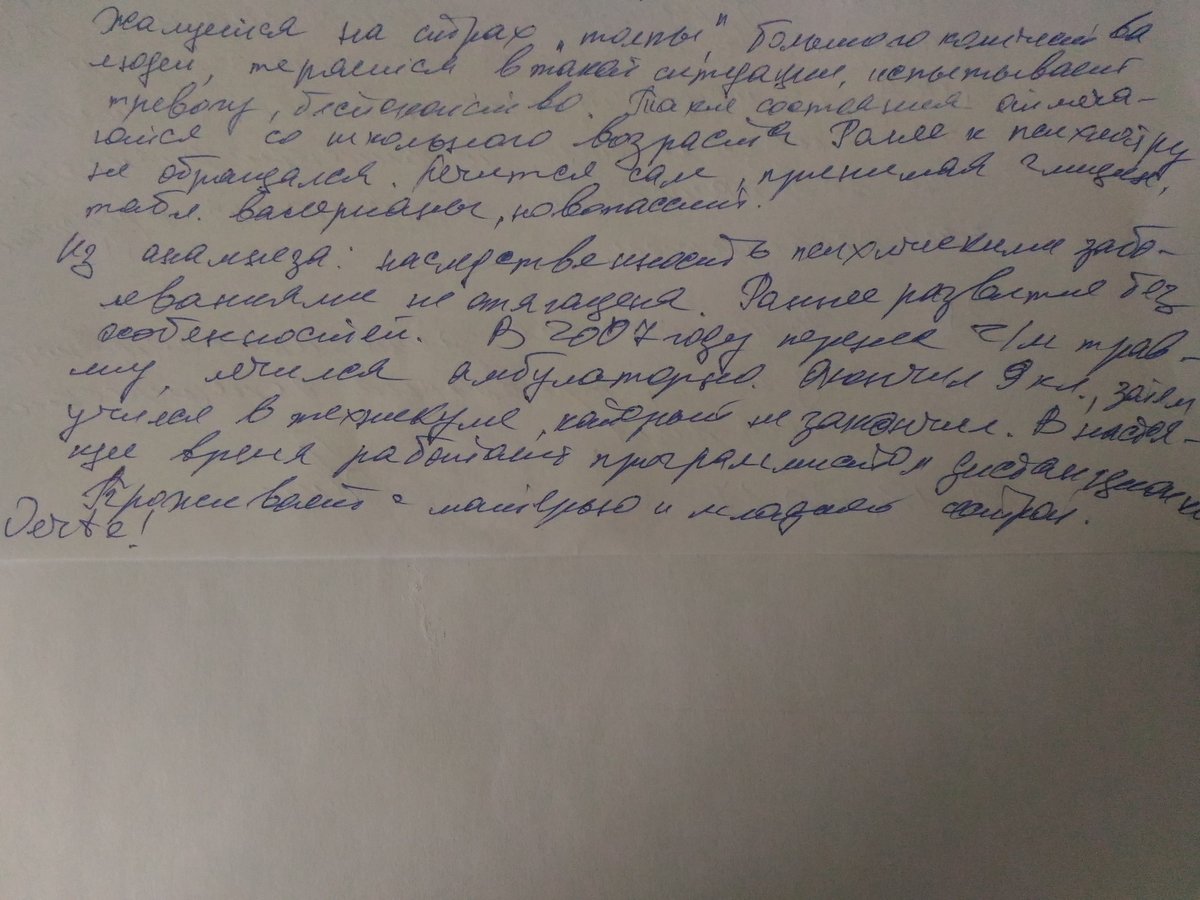 Жалуется на страх „толпы", большого количества
людей, теряется в такой ситуации, испытывает
тревогу, беспокойство. Такие состояния отмеча-
ются со школьного возраста Ранее к психиатру
не обращался. Лечится сам, принимая глицин,
табл. валерианы, новопассит.
Из анамнеза: наследственность психическими забо-
леваниями не отягощена. Раннее развитие без
особенностей. В 2007 году перенес ч/м трав-
му, лечился амбулаторно. Окончил 9 кл., затем
учился в техникуме, который не закончил. В настоя-
щее время работает программистом дистанционно
Проживает с матерью и младшей сестрой.
Verte!